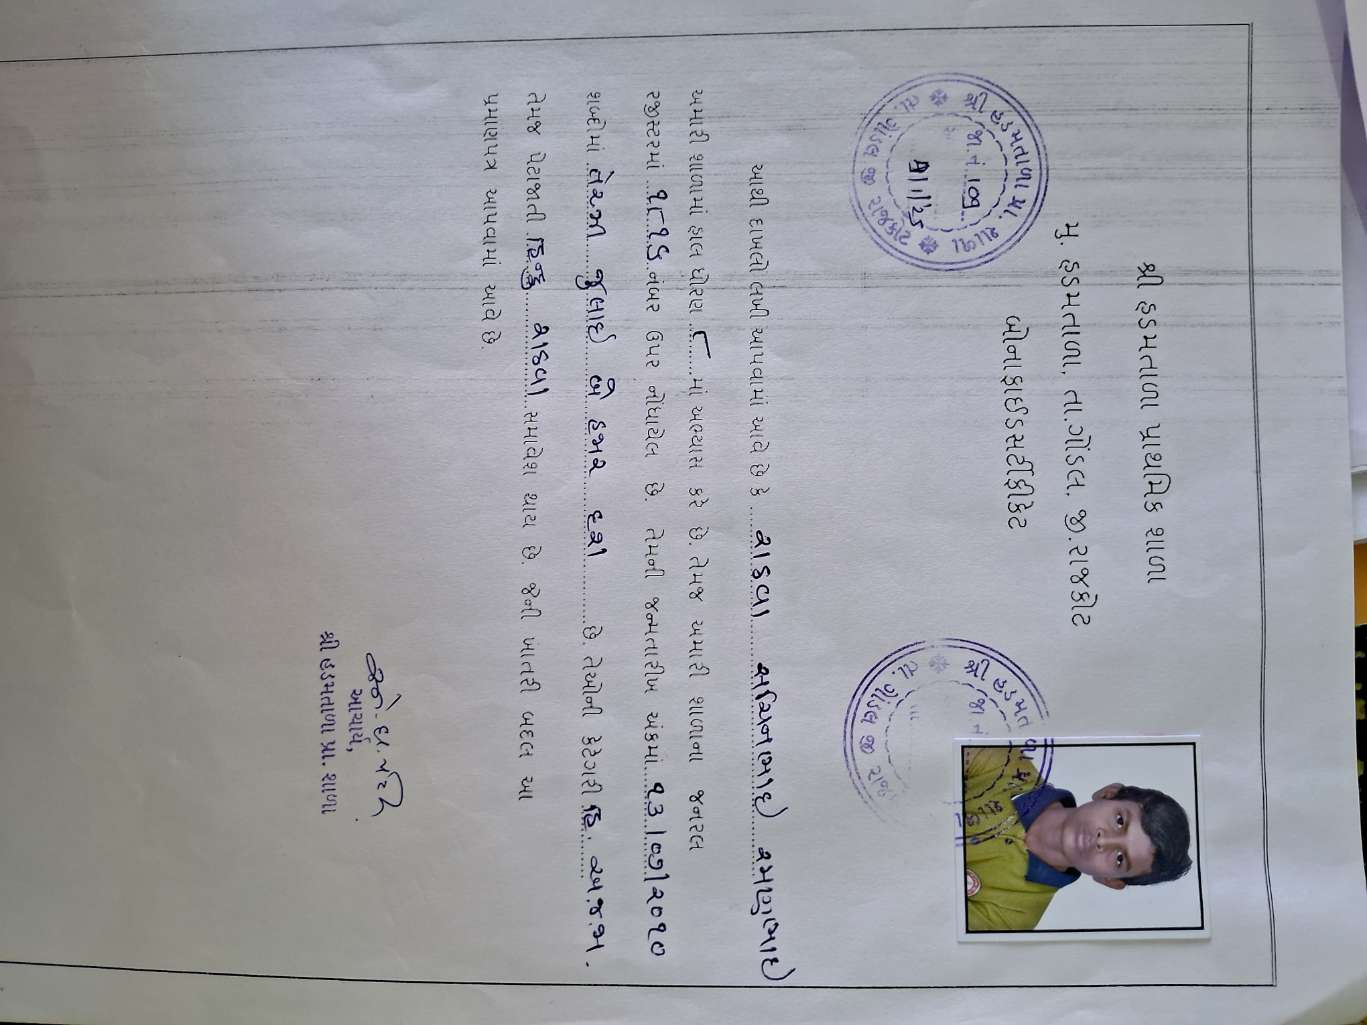 શ્રી હડમતાળા પ્રાથમિક શાળા
મુ. હડમતાળા, તા.ગોંડલ, જી.રાજકોટ
બોનાફાઈડસર્ટીફીકેટ
શ્રી હડમતાળા પ્રા. શાળા
તા. ગોંડલ જી. રાજકોટ
જા.નં. ૭૧
આથી દાખલો લખી આપવામાં આવે છે કે શાકલા સચિનભાઈ રમણુભાઈ
અમારી શાળામાં હાલ ધોરણ ૮ માં અભ્યાસ કરે છે. તેમજ અમારી શાળાના જનરલ
રજીસ્ટરમાં નંબર ઉપર નોંધાયેલ છે તેમની જન્મતારીખ અંકમાં ૧૩/૦૭/૨૦૧૦
શબ્દોમાં તેરમી જુલાઈ બે હજાર દશ છે. તેઓની કેટેગરી
તેમજ પેટાજાતી હિન્દુ શાકલા સમાવેશ થાય છે. જેની ખાતરી બદલ આ
પ્રમાણપત્ર આપવામાં આવે છે.
આચાર્ય,
શ્રી હડમતાળા પ્રા. શાળા